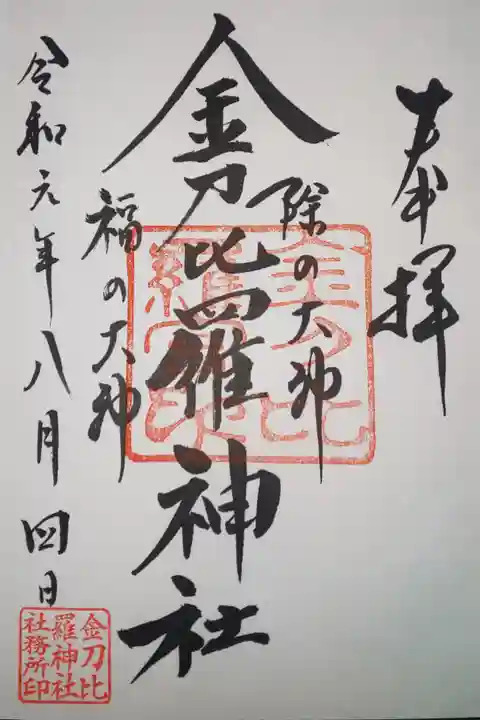 奉拝
除の大神
金刀比羅神社
福の大神
令和元年八月四日
金刀比
羅神社
社務所印